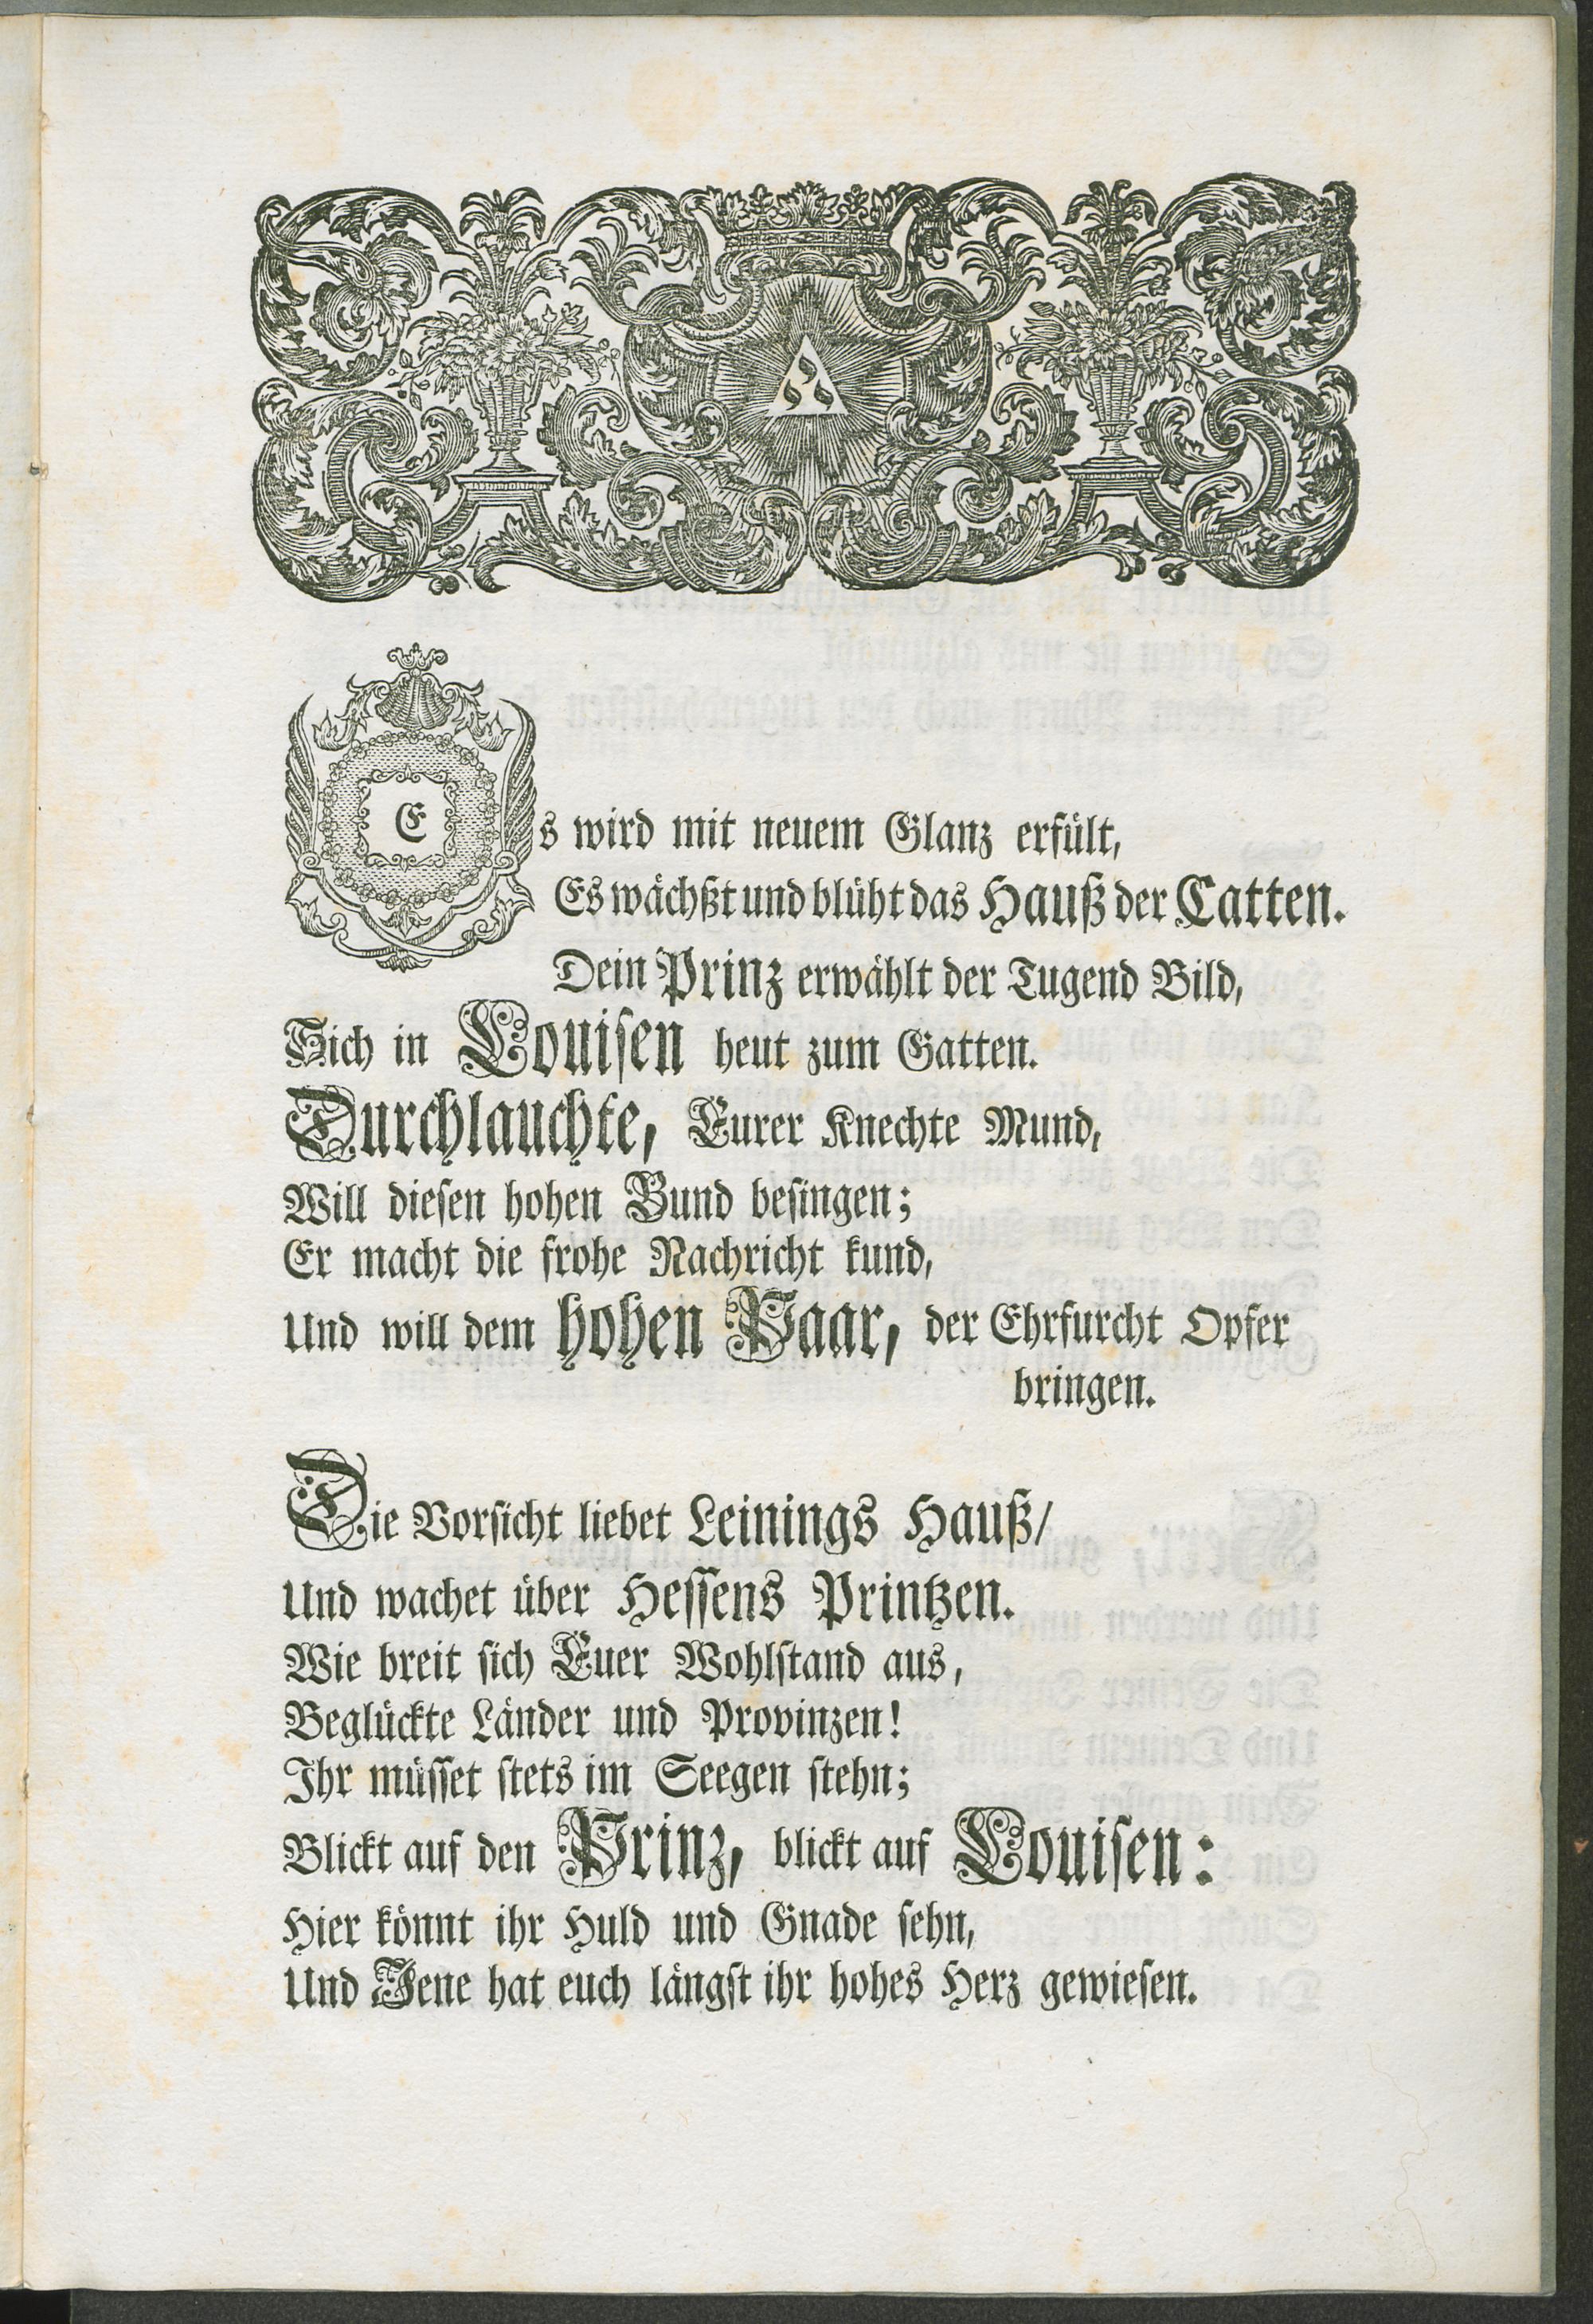 Es wird mit neuem Glanz erfült,
Es wächßt und blüht das Hauß der Catten.
Dein Prinz erwählt der Tugend Bild,
Sich in Louisen heut zum Gatten.
Durchlauchte, Eurer Knechte Mund,
Will diesen hohen Bund besingen;
Er macht die frohe Nachricht kund,
Und will dem hohen Paar, der Ehrfurcht Opfer
bringen.
Die Vorsicht liebet Leinings Hauß/
Und wachet über Hessens Printzen.
Wie breit sich Euer Wohlstand aus,
Beglückte Länder und Provinzen!
Ihr müsset stets im Seegen stehn;
Blickt auf den Prinz, blickt auf Louisen:
Hier könnt ihr Huld und Gnade sehn,
Und Jene hat euch längst ihr hohes Herz gewiesen.